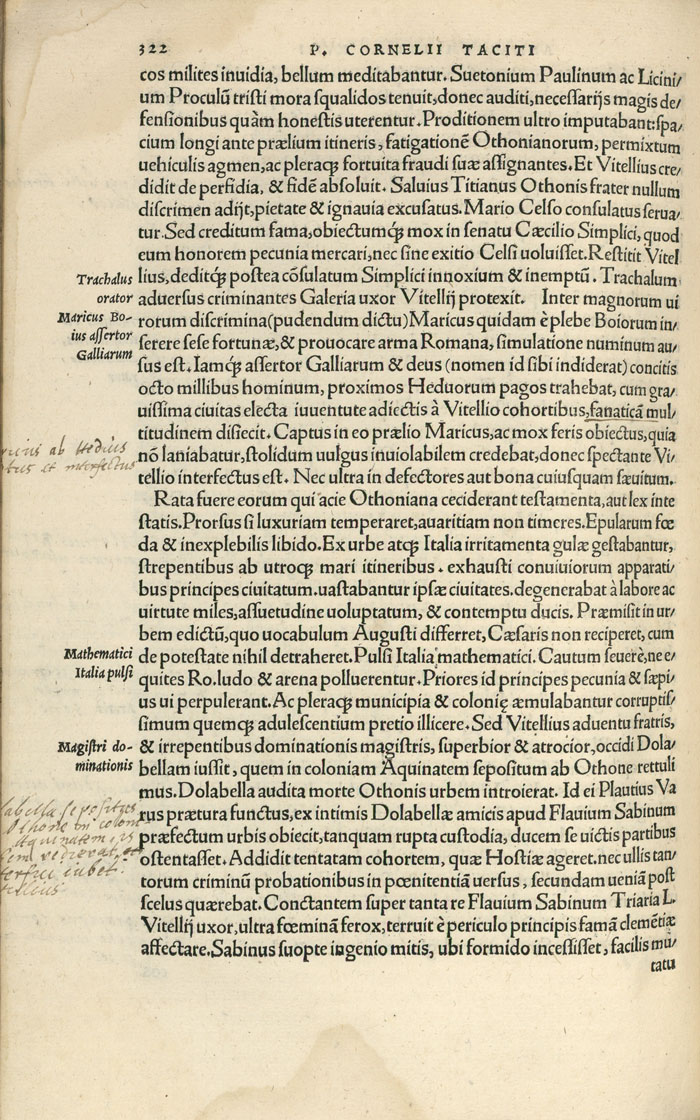 322 P. CORNELII TACITI
cos milites inuidia, bellum meditabantur. Suetonium Paulinum ac Licini/
um Proculū tristi mora squalidos tenuit, donec auditi, necessarijs magis de/
fensionibus quàm honestis uterentur. Proditionem ultro imputabant: spa/
cium longi ante prælium itineris, fatigationē Othonianorum, permixtum
uehiculis agmen, ac pleraq; fortuita fraudi suæ assignantes. Et Vitellius cre/
didit de perfidia, & fidē absoluit. Saluius Titianus Othonis frater nullum
discrimen adijt, pietate & ignauia excusatus. Mario Celso consulatus serua/
tur. Sed creditum fama, obiectumq́; mox in senatu Cæcilio Simplici, quod
eum honorem pecunia mercari, nec sine exitio Celsi uoluisset. Restitit Vitel
Trachalus
orator
lius, deditq́; postea cōsulatum Simplici innoxium & inemptū. Trachalum
aduersus criminantes Galeria uxor Vitellij protexit. Inter magnorum ui
Maricus Bo-
ius assertor
Galliarum
rorum discrimina (pudendum dictu) Maricus quidam è plebe Boiorum in/
serere sese fortunæ, & prouocare arma Romana, simulatione numinum au/
sus est. Iamq́; assertor Galliarum & deus (nomen id sibi indiderat) concitis
octo millibus hominum, proximos Heduorum pagos trahebat, cum gra/
uissima ciuitas electa iuuentute adiectis à Vitellio cohortibus, fanaticā mul/
titudinem disiecit. Captus in eo prælio Maricus, ac mox feris obiectus, quia
ab Hedius
et interfectus
nō laniabatur, stolidum uulgus inuiolabilem credebat, donec spectante Vi/
tellio interfectus est. Nec ultra in defectores aut bona cuiusquam sæuitum.
Rata fuere eorum qui acie Othoniana ceciderant testamenta, aut lex inte
statis. Prorsus si luxuriam temperaret, auaritiam non timeres. Epularum fœ
da & inexplebilis libido. Ex urbe atq; Italia irritamenta gulæ gestabantur,
strepentibus ab utroq; mari itineribus. exhausti conuiuiorum apparati/
bus principes ciuitatum. uastabantur ipsæ ciuitates. degenerabat à labore ac
uirtute miles, assuetudine uoluptatum, & contemptu ducis. Præmisit in ur/
bem edictū, quo uocabulum Augusti differret, Cæsaris non reciperet, cum
Mathematici
Italia pulsi
de potestate nihil detraheret. Pulsi Italia mathematici. Cautum seuerè, ne e/
quites Ro. ludo & arena polluerentur. Priores id principes pecunia & sæpi/
us ui perpulerant. Ac pleraq; municipia & colonię æmulabantur corruptis/
simum quemq; adulescentium pretio illicere. Sed Vitellius aduentu fratris,
Magistri do-
minationis
& irrepentibus dominationis magistris, superbior & atrocior, occidi Dola/
bellam iussit, quem in coloniam Aquinatem sepositum ab Othone rettuli
mus. Dolabella audita morte Othonis urbem introierat. Id ei Plautius Va
sepositus
Othone in colon
Aquinatem, is
iubet
rus prætura functus, ex intimis Dolabellæ amicis apud Flauium Sabinum
præfectum urbis obiecit, tanquam rupta custodia, ducem se uictis partibus
ostentasset. Addidit tentatam cohortem, quæ Hostiæ ageret. nec ullis tan/
torum criminū probationibus in pœnitentiā uersus, secundam ueniā post
scelus quærebat. Conctantem super tanta re Flauium Sabinum Triaria L.
Vitellij uxor, ultra fœminā ferox, terruit è periculo principis famā clemētiæ
affectare. Sabinus suopte ingenio mitis, ubi formido incessisset, facilis mu/
tatu